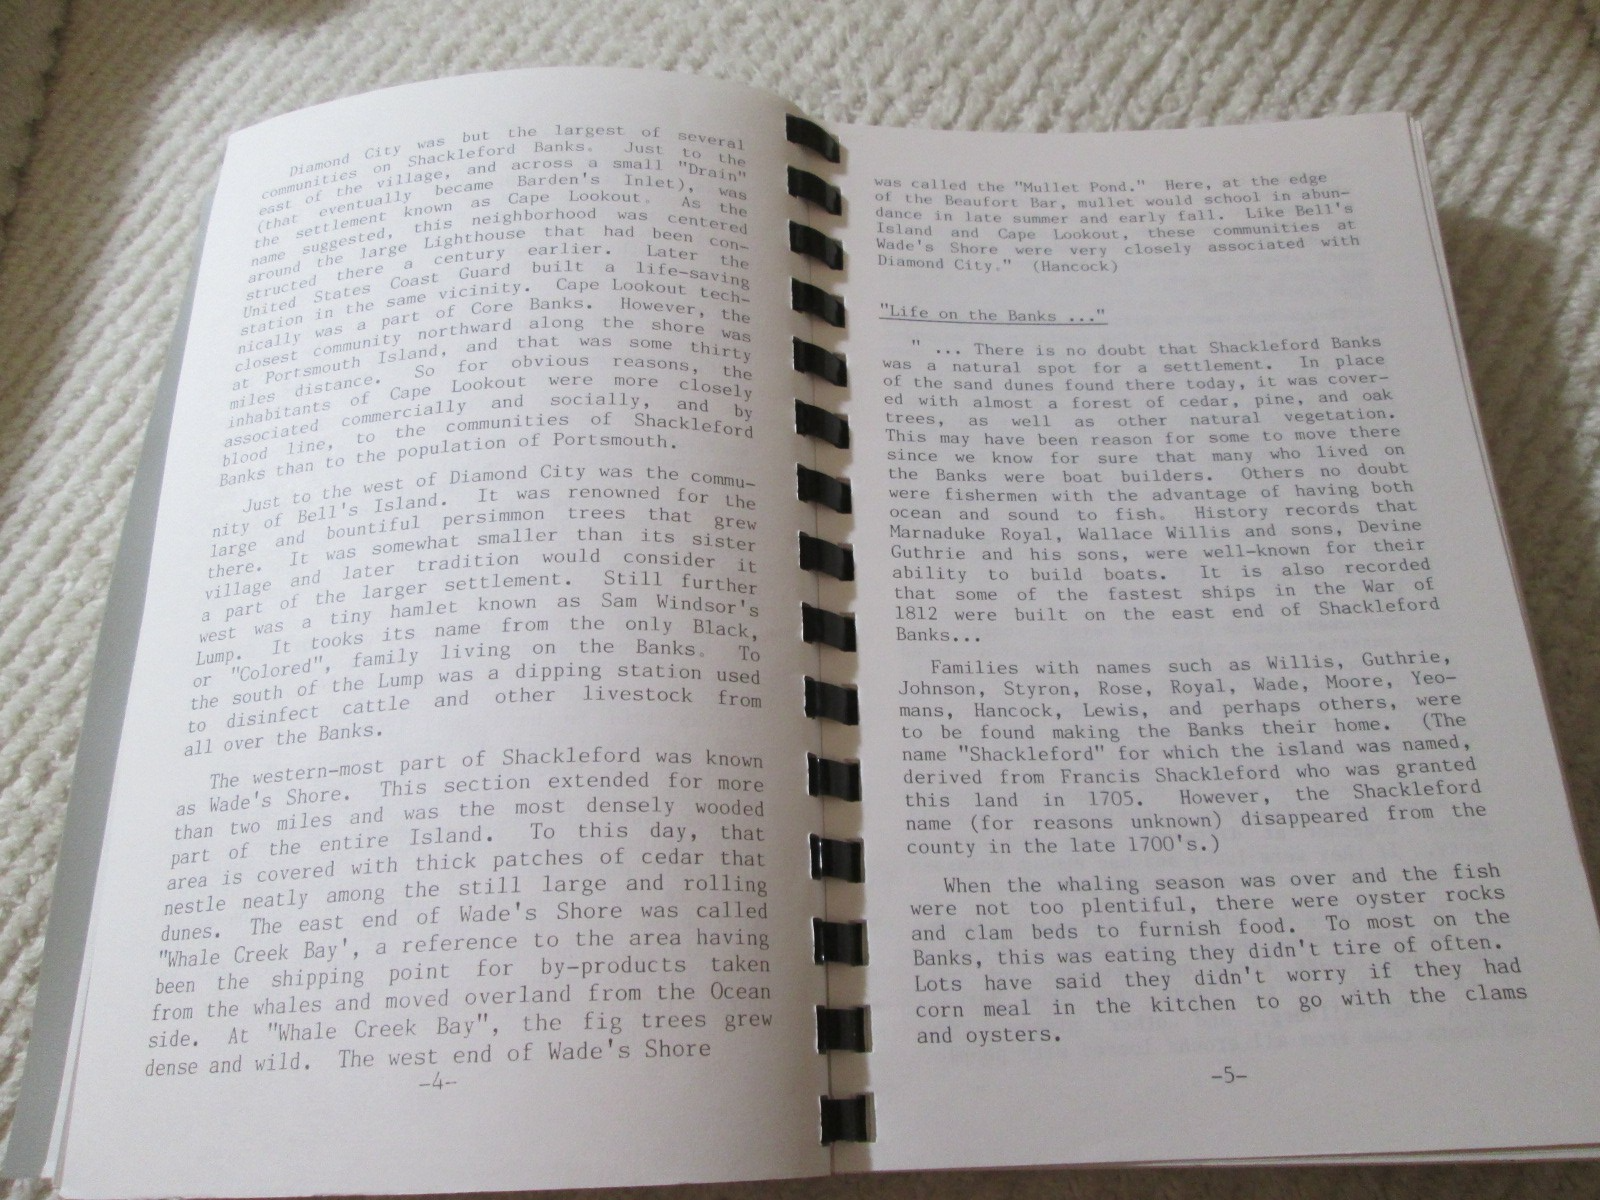 Diamond City was but the largest of several
communities on Shackleford Banks. Just to the
east of the village, and across a small "Drain"
(that eventually became Barden's Inlet), was
the settlement known as Cape Lookout. As the
name suggested, this neighborhood was centered
around the large Lighthouse that had been con-
structed there a century earlier. Later the
United States Coast Guard built a life-saving
station in the same vicinity. Cape Lookout tech-
nically was a part of Core Banks. However, the
closest community northward along the shore was
at Portsmouth Island, and that was some thirty
miles distance. So for obvious reasons, the
inhabitants of Cape Lookout were more closely
associated commercially and socially, and by
blood line, to the communities of Shackleford
Banks than to the population of Portsmouth.
Just to the west of Diamond City was the commu-
nity of Bell's Island. It was renowned for the
large and bountiful persimmon trees that grew
there. It was somewhat smaller than its sister
village and later tradition would consider it
a part of the larger settlement. Still further
west was a tiny hamlet known as Sam Windsor's
Lump. It tooks its name from the only Black,
or "Colored", family living on the Banks. To
the south of the Lump was a dipping station used
to disinfect cattle and other livestock from
all over the Banks.
The western-most part of Shackleford was known
as Wade's Shore. This section extended for more
than two miles and was the most densely wooded
part of the entire Island. To this day, that
area is covered with thick patches of cedar that
nestle neatly among the still large and rolling
dunes. The east end of Wade's Shore was called
"Whale Creek Bay', a reference to the area having
been the shipping point for by-products taken
from the whales and moved overland from the Ocean
side. At "Whale Creek Bay", the fig trees grew
dense and wild. The west end of Wade's Shore
-4-
was called the "Mullet Pond." Here, at the edge
of the Beaufort Bar, mullet would school in abun-
dance in late summer and early fall. Like Bell's
Island and Cape Lookout, these communities at
Wade's Shore were very closely associated with
Diamond City." (Hancock)
"Life on the Banks ..."
" ... There is no doubt that Shackleford Banks
was a natural spot for a settlement. In place
of the sand dunes found there today, it was cover-
ed with almost a forest of cedar, pine, and oak
trees, as well as other natural vegetation.
This may have been reason for some to move there
since we know for sure that many who lived on
the Banks were boat builders. Others no doubt
were fishermen with the advantage of having both
ocean and sound to fish. History records that
Marnaduke Royal, Wallace Willis and sons, Devine
Guthrie and his sons, were well-known for their
ability to build boats. It is also recorded
that some of the fastest ships in the War of
1812 were built on the east end of Shackleford
Banks...
Families with names such as Willis, Guthrie,
Johnson, Styron, Rose, Royal, Wade, Moore, Yeo-
mans, Hancock, Lewis, and perhaps others, were
to be found making the Banks their home. (The
name "Shackleford" for which the island was named,
derived from Francis Shackleford who was granted
this land in 1705. However, the Shackleford
name (for reasons unknown) disappeared from the
county in the late 1700's.)
When the whaling season was over and the fish
were not too plentiful, there were oyster rocks
and clam beds to furnish food. To most on the
Banks, this was eating they didn't tire of often.
Lots have said they didn't worry if they had
corn meal in the kitchen to go with the clams
and oysters.
-5-